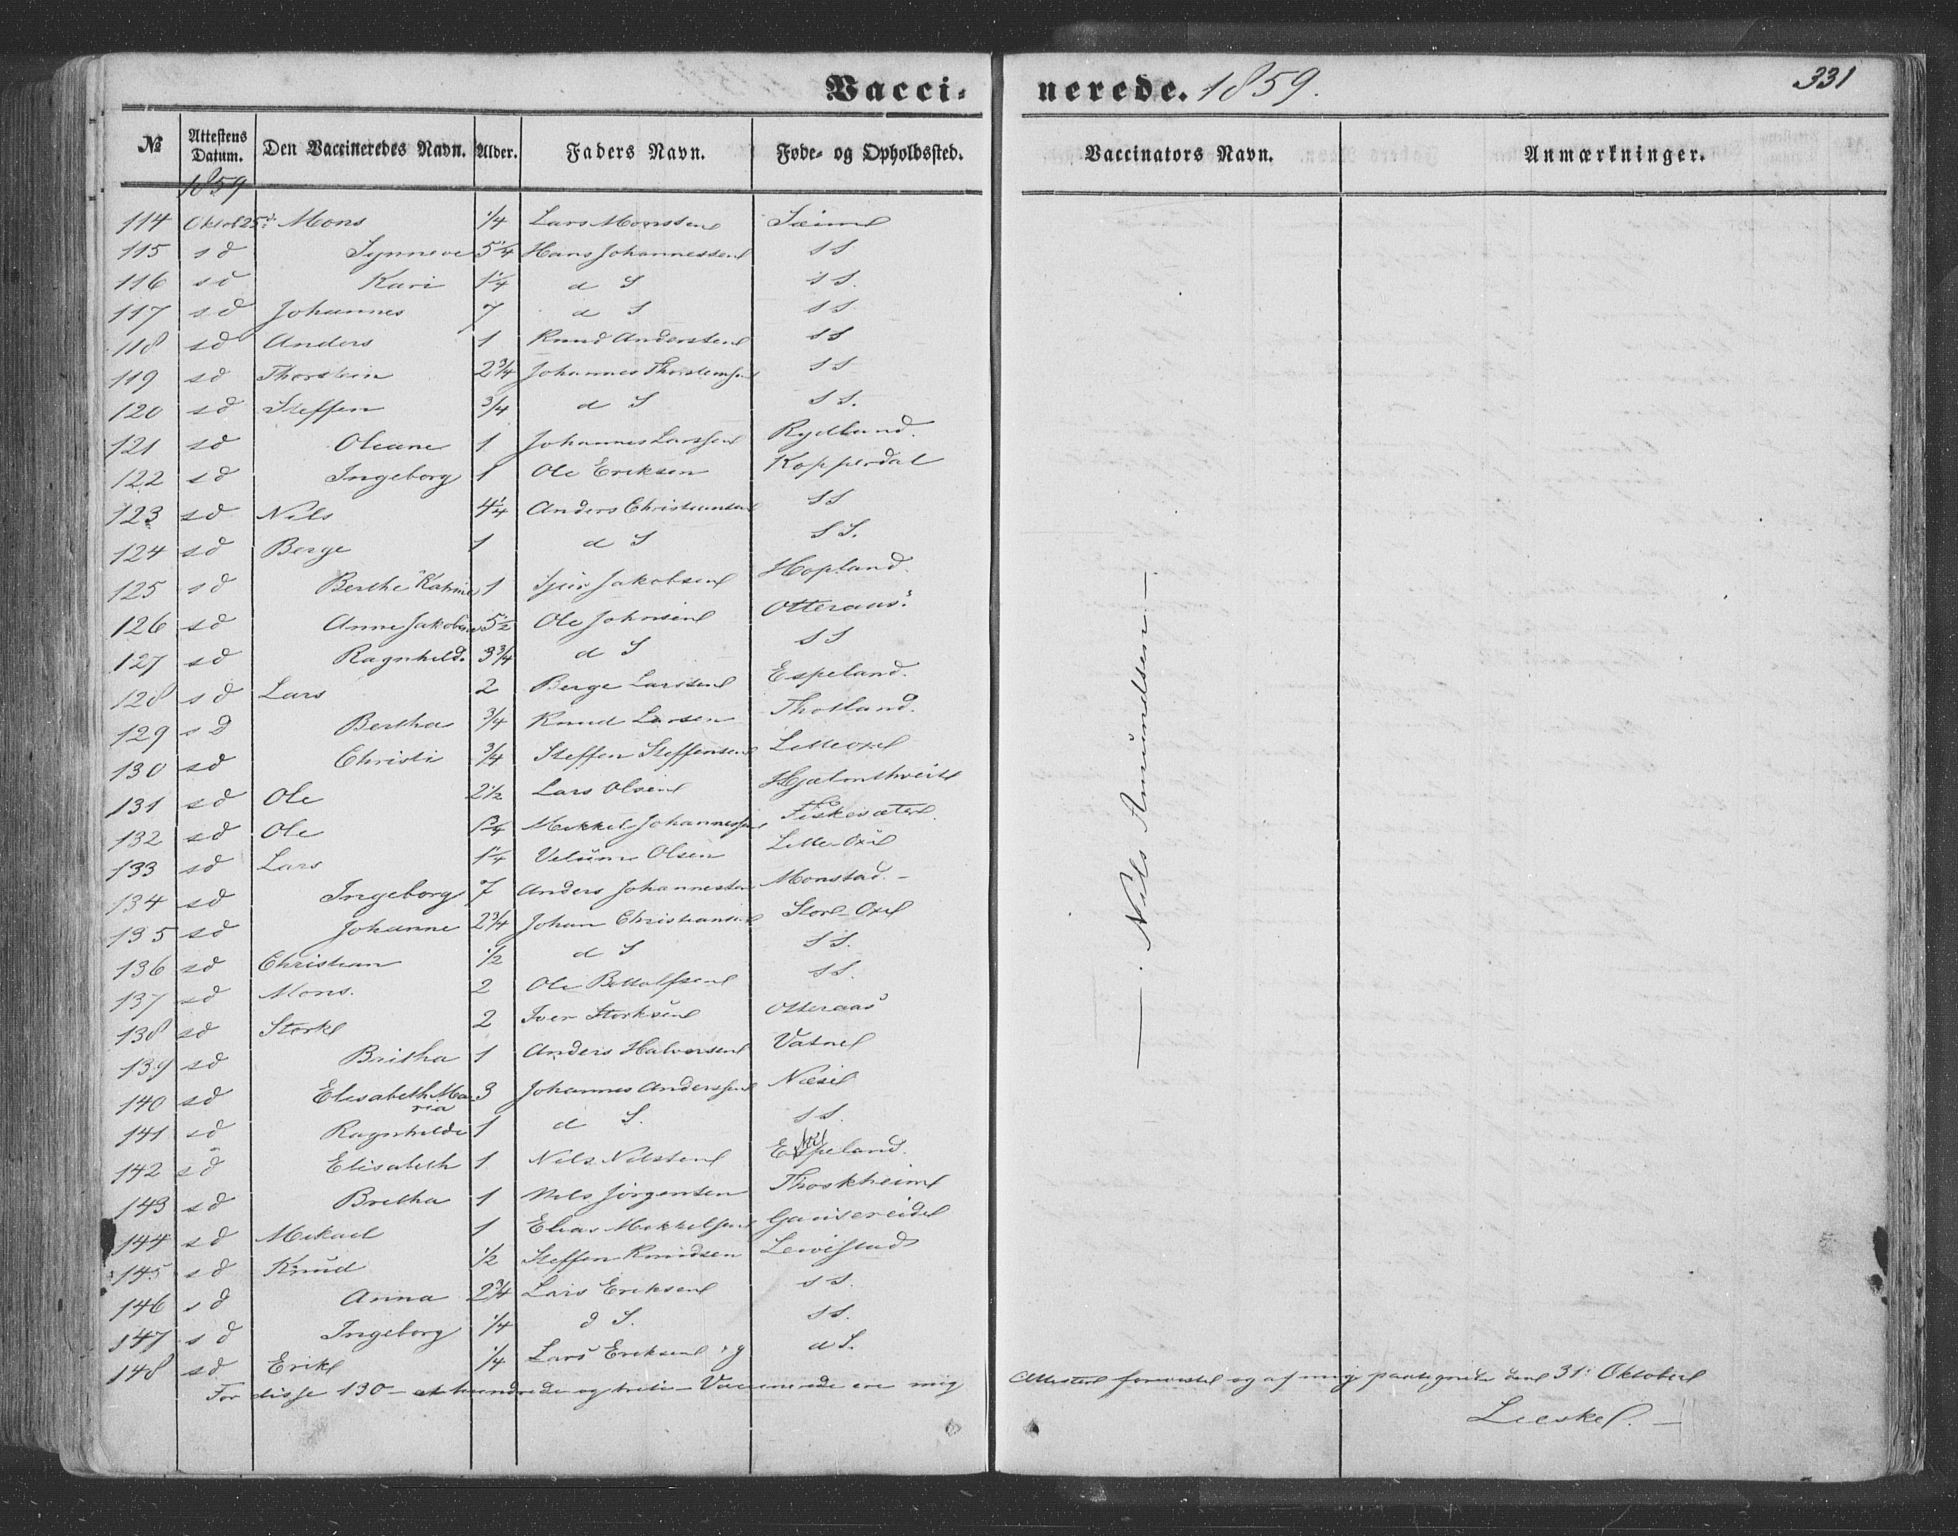 Vacci- nerede. 1859. 331
№ Attestens Datum. Den Vaccineredes Navn. Alder. Faders Navn. Føde- og Opholdssted. Vaccinators Navn. Anmærkninger.
1859
114 Oktob 25d Mons 1/4 Lars Monssen Sæim
115 sd Synneve 5 1/4 Hans Johannessen s S
116 sd Kari 1 1/4 d S s S.
117 sd Johannes 7 d S s S
118 sd Anders 1 Knud Anderssen s S
119 sd Thorstein 2 3/4 Johannes Thorsteinsen s S
120 sd Steffen 3/4 d S s S.
121 sd Oleane 1 Johannes Larssen Rydland.
122 sd Ingeborg 1 Ole Eriksen Kopperdal
123 sd Nils 4 1/4 Anders Christiansen s S
124 sd Berge 1 d S s S.
125 sd Berthe Katrine 1 Jakobsen Hopland.
126 sd Anne Jakobine 5 1/2 Ole Johnsen Otteraas.
127 sd Ragnhild. 3 3/4 d S s S
128 sd Lars 2 Berge Larssen Espeland.
129 sd Bertha 3/4 Knud Larsen Thotland.
130 sd Christi 3/4 Steffen Steffensen Litleoxel
131 sd Ole 2 1/2 Lars Olsen Hjælmthveit
132 sd Ole Mikkel Johannessen Fiskesæter.
133 sd Lars 1 1/4 Olsen Litle-Oxel
134 sd Ingeborg 7 Anders Johannessen Monstad. -
135 sd Johanne 2 3/4 Johan Christiansen Store-Oxel
136 sd Christian 1/2 d S s S.
137 sd Mons. 2 Ole Bottolfsen s S.
138 sd Størk 2 Iver Størksen Otteraas
139 sd Britha 1 Anders Halvorsen Vatne
140 sd Elisabeth Maria 3 Johannes Anderssen Næse
141 sd Ragnhilde 1 d S. s S.
142 sd Elisabeth 1 Nils Nilssen Espeland.
143 sd Britha 1 Nils Jörgensen Throskheim
144 sd Mikael 1 Elias Mikkelsen Gausereide
145 sd Knud 1/2 Steffen Knudsen Leivestad
146 sd Anna 2 3/4 Lars Eriksen s S.
147 sd Ingeborg 1/4 d S. s S.
148 sd Erik 1/4 Lars Eriksen d S.
— Nils Amundsen —
For disse 130 - et hundrede og treti - Vaccinerede ere mig Attester foreviste og af mig paategnede den 31. Oktober
Lieske. —